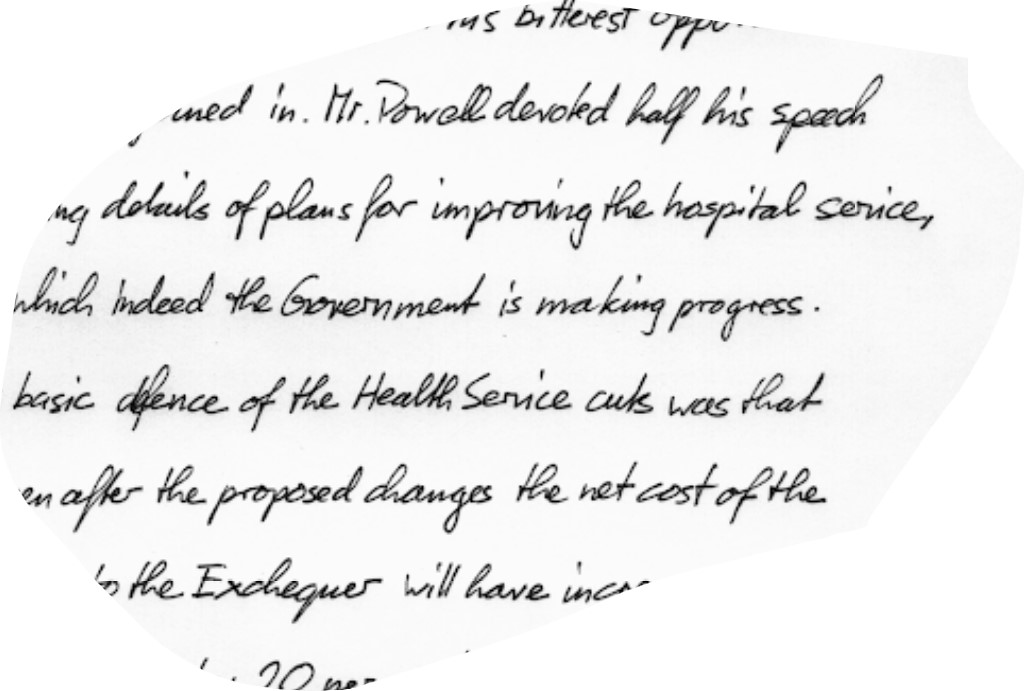 bitterest
in. Mr. Powell devoted half his speech
details of plans for improving the hospital service,
which indeed the Government is making progress.
basic defence of the Health Service cuts was that
after the proposed changes the net cost of the
to the Exchequer will have
20